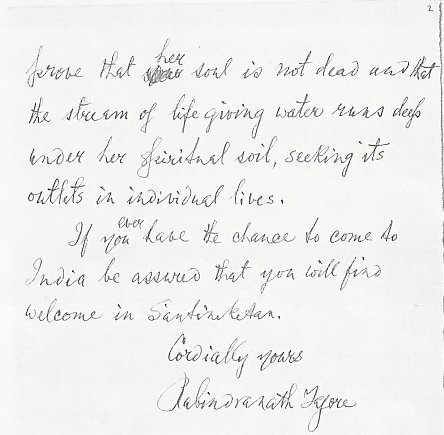 2
prove that her soul is not dead and that
the stream of life giving water runs deep
under her spiritual soil, seeking its
outlets in individual lives.
If you ever have the chance to come to
India be assured that you will find
welcome in Santiniketan.
Cordially yours
Rabindranath Tagore